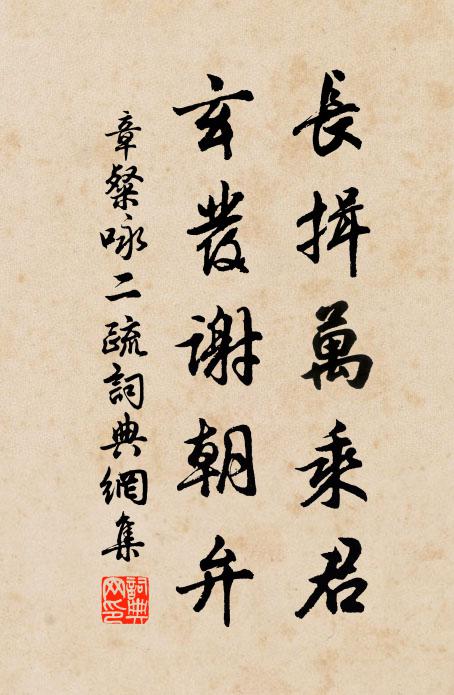 長揖萬乘君
玄髮謝朝弁
章粲咏二疏詞典網集
詞典网印